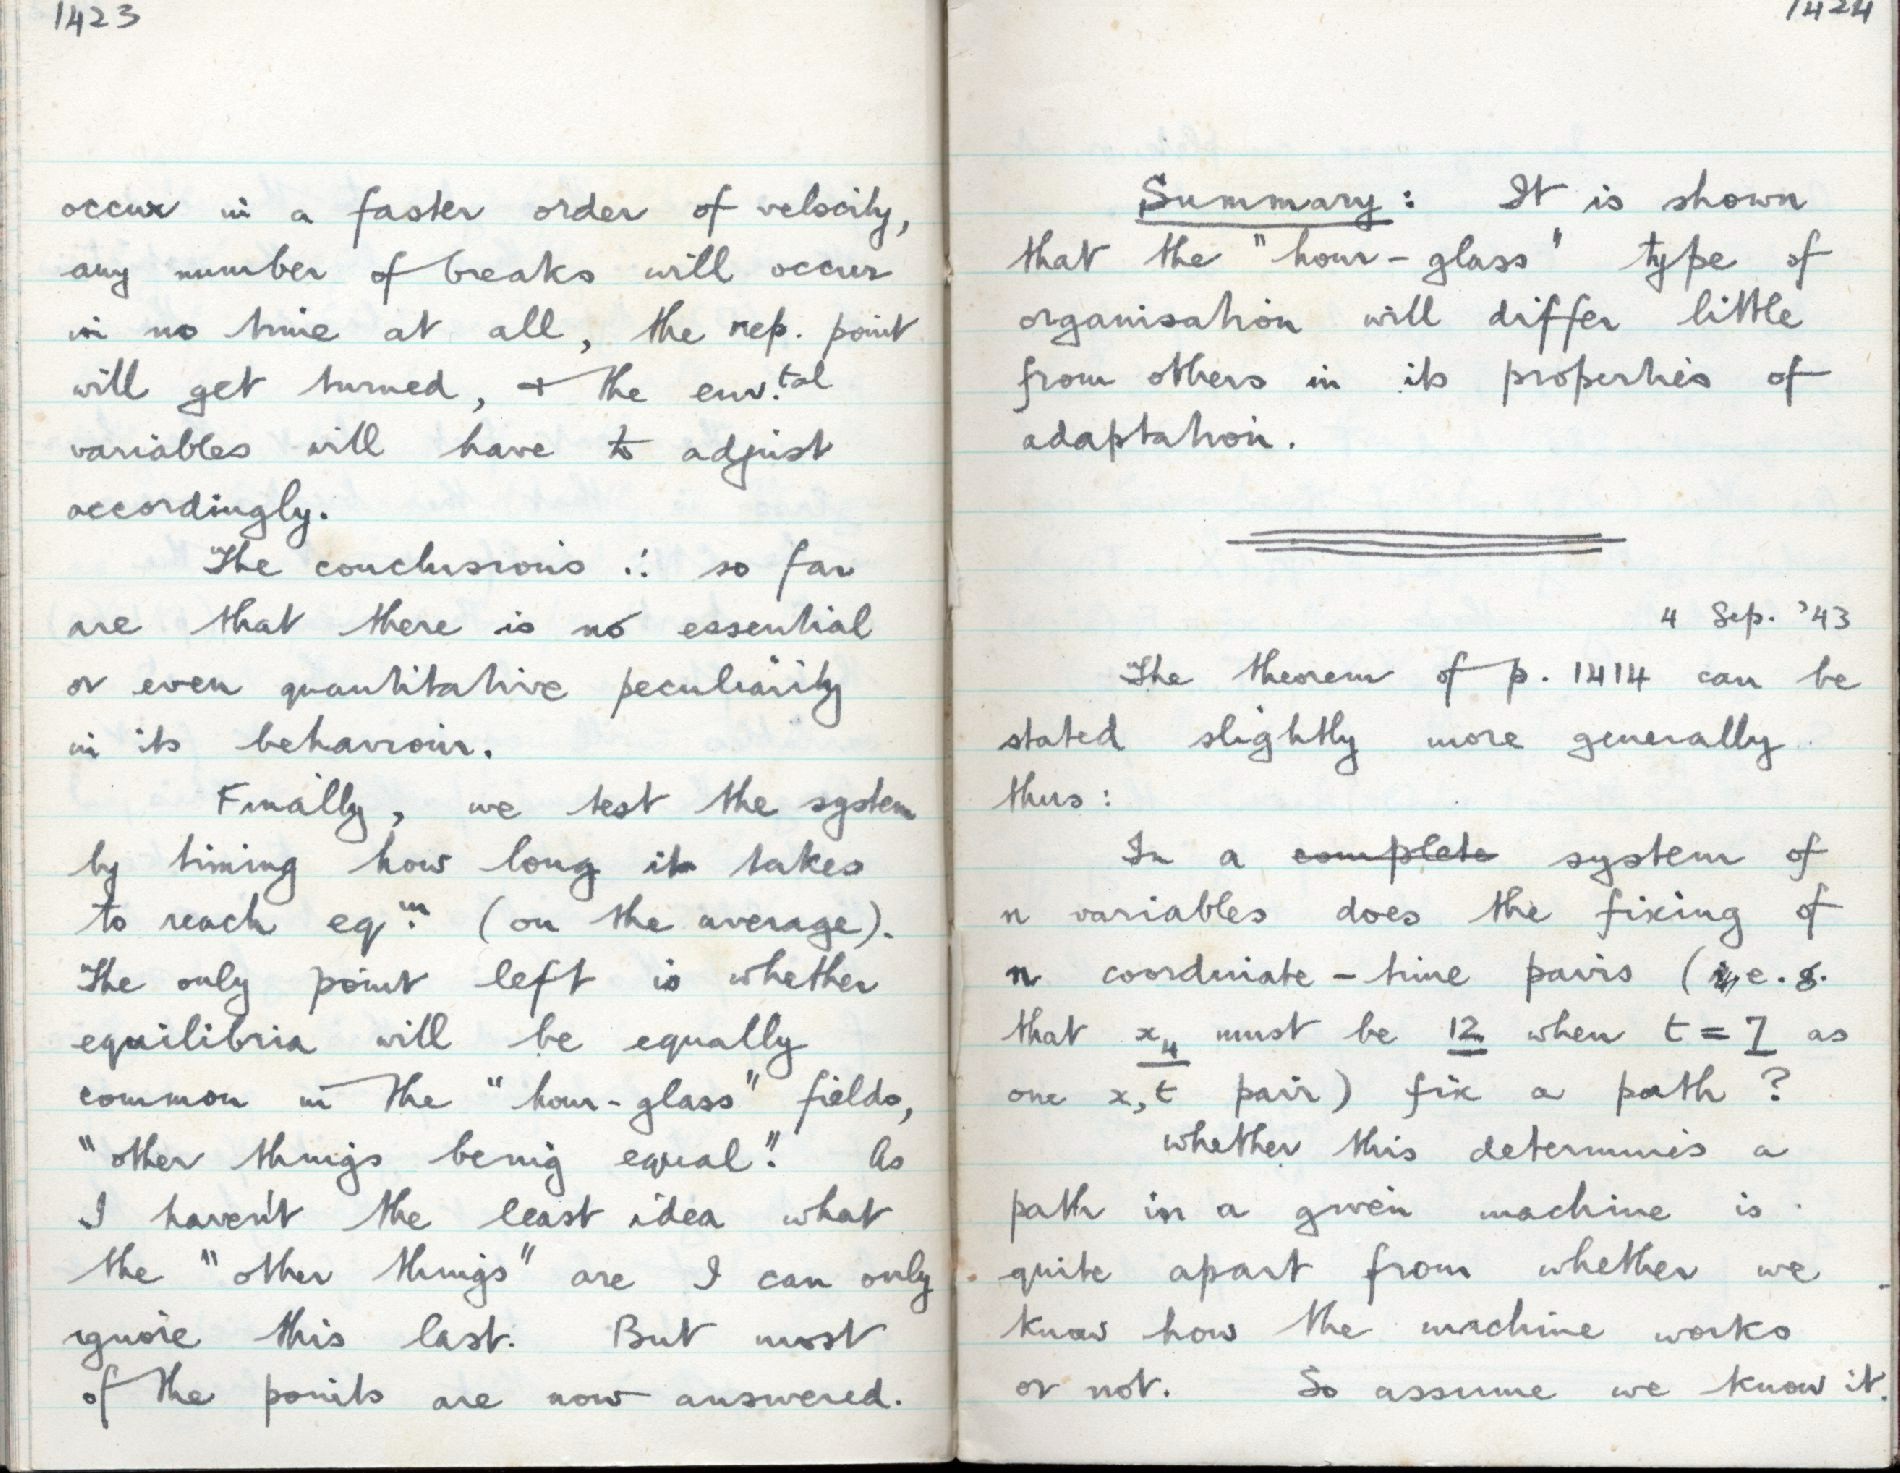 1423
occur in a faster order of velocity,
any number of breaks will occur
in no time at all, the rep. point
will get turned, + the env.tal
variables will have to adjust
accordingly.
The conclusions ∴ so far
are that there is no essential
or even quantitative peculiarity
in its behaviour.
Finally, we test the system
by timing how long it takes
to reach eq.m (on the average).
The only point left is whether
equilibria will be equally
common in the "hour-glass" fields,
"other things being equal". As
I haven't the least idea what
the "other things" are I can only
ignore this last. But most
of the points are now answered.
1424
Summary: It is shown
that the "hour-glass" type of
organisation will differ little
from others in its properties of
adaptation.
4 Sep. '43
The theorem of p. 1414 can be
stated slightly more generally
thus:
In a complete system of
n variables does the fixing of
n coordinate-time pairs (e.g.
that x4 must be 12 when t = 7 as
one x,t pair) fix a path?
Whether this determines a
path in a given machine is
quite apart from whether we
know how the machine works
or not. So assume we know it.